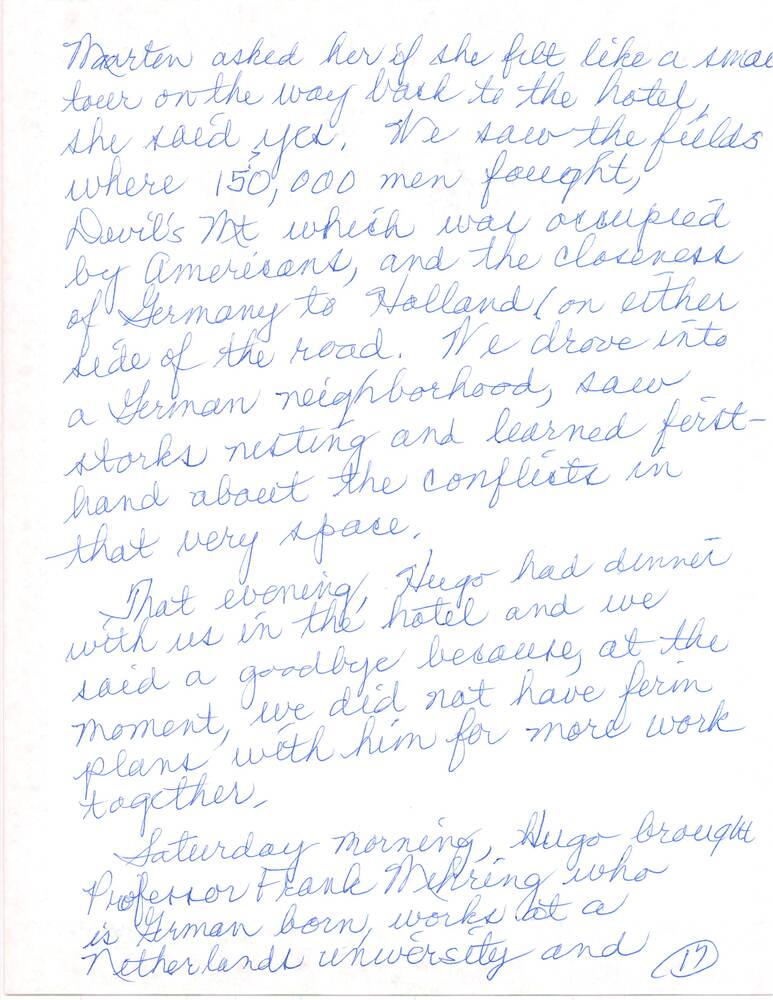 Maarten asked her if she felt like a smal
tour on the way back to the hotel,
she said yes. We saw the fields
where 150,000 men fought,
Devil's Mt which was occupied
by Americans, and the closeness
of Germany to Holland (on either
side of the road. We drove into
a German neighborhood, saw
storks nesting and learned first-
hand about the conflicts in
that very space.
That evening, Hugo had dinner
with us in the hotel and we
said a goodbye because, at the
moment, we did not have ferm
plans with him for more work
together.
Saturday morning, Hugo brought
Professor Frank Mehring who
is German born, works at a
Netherlands university and
17